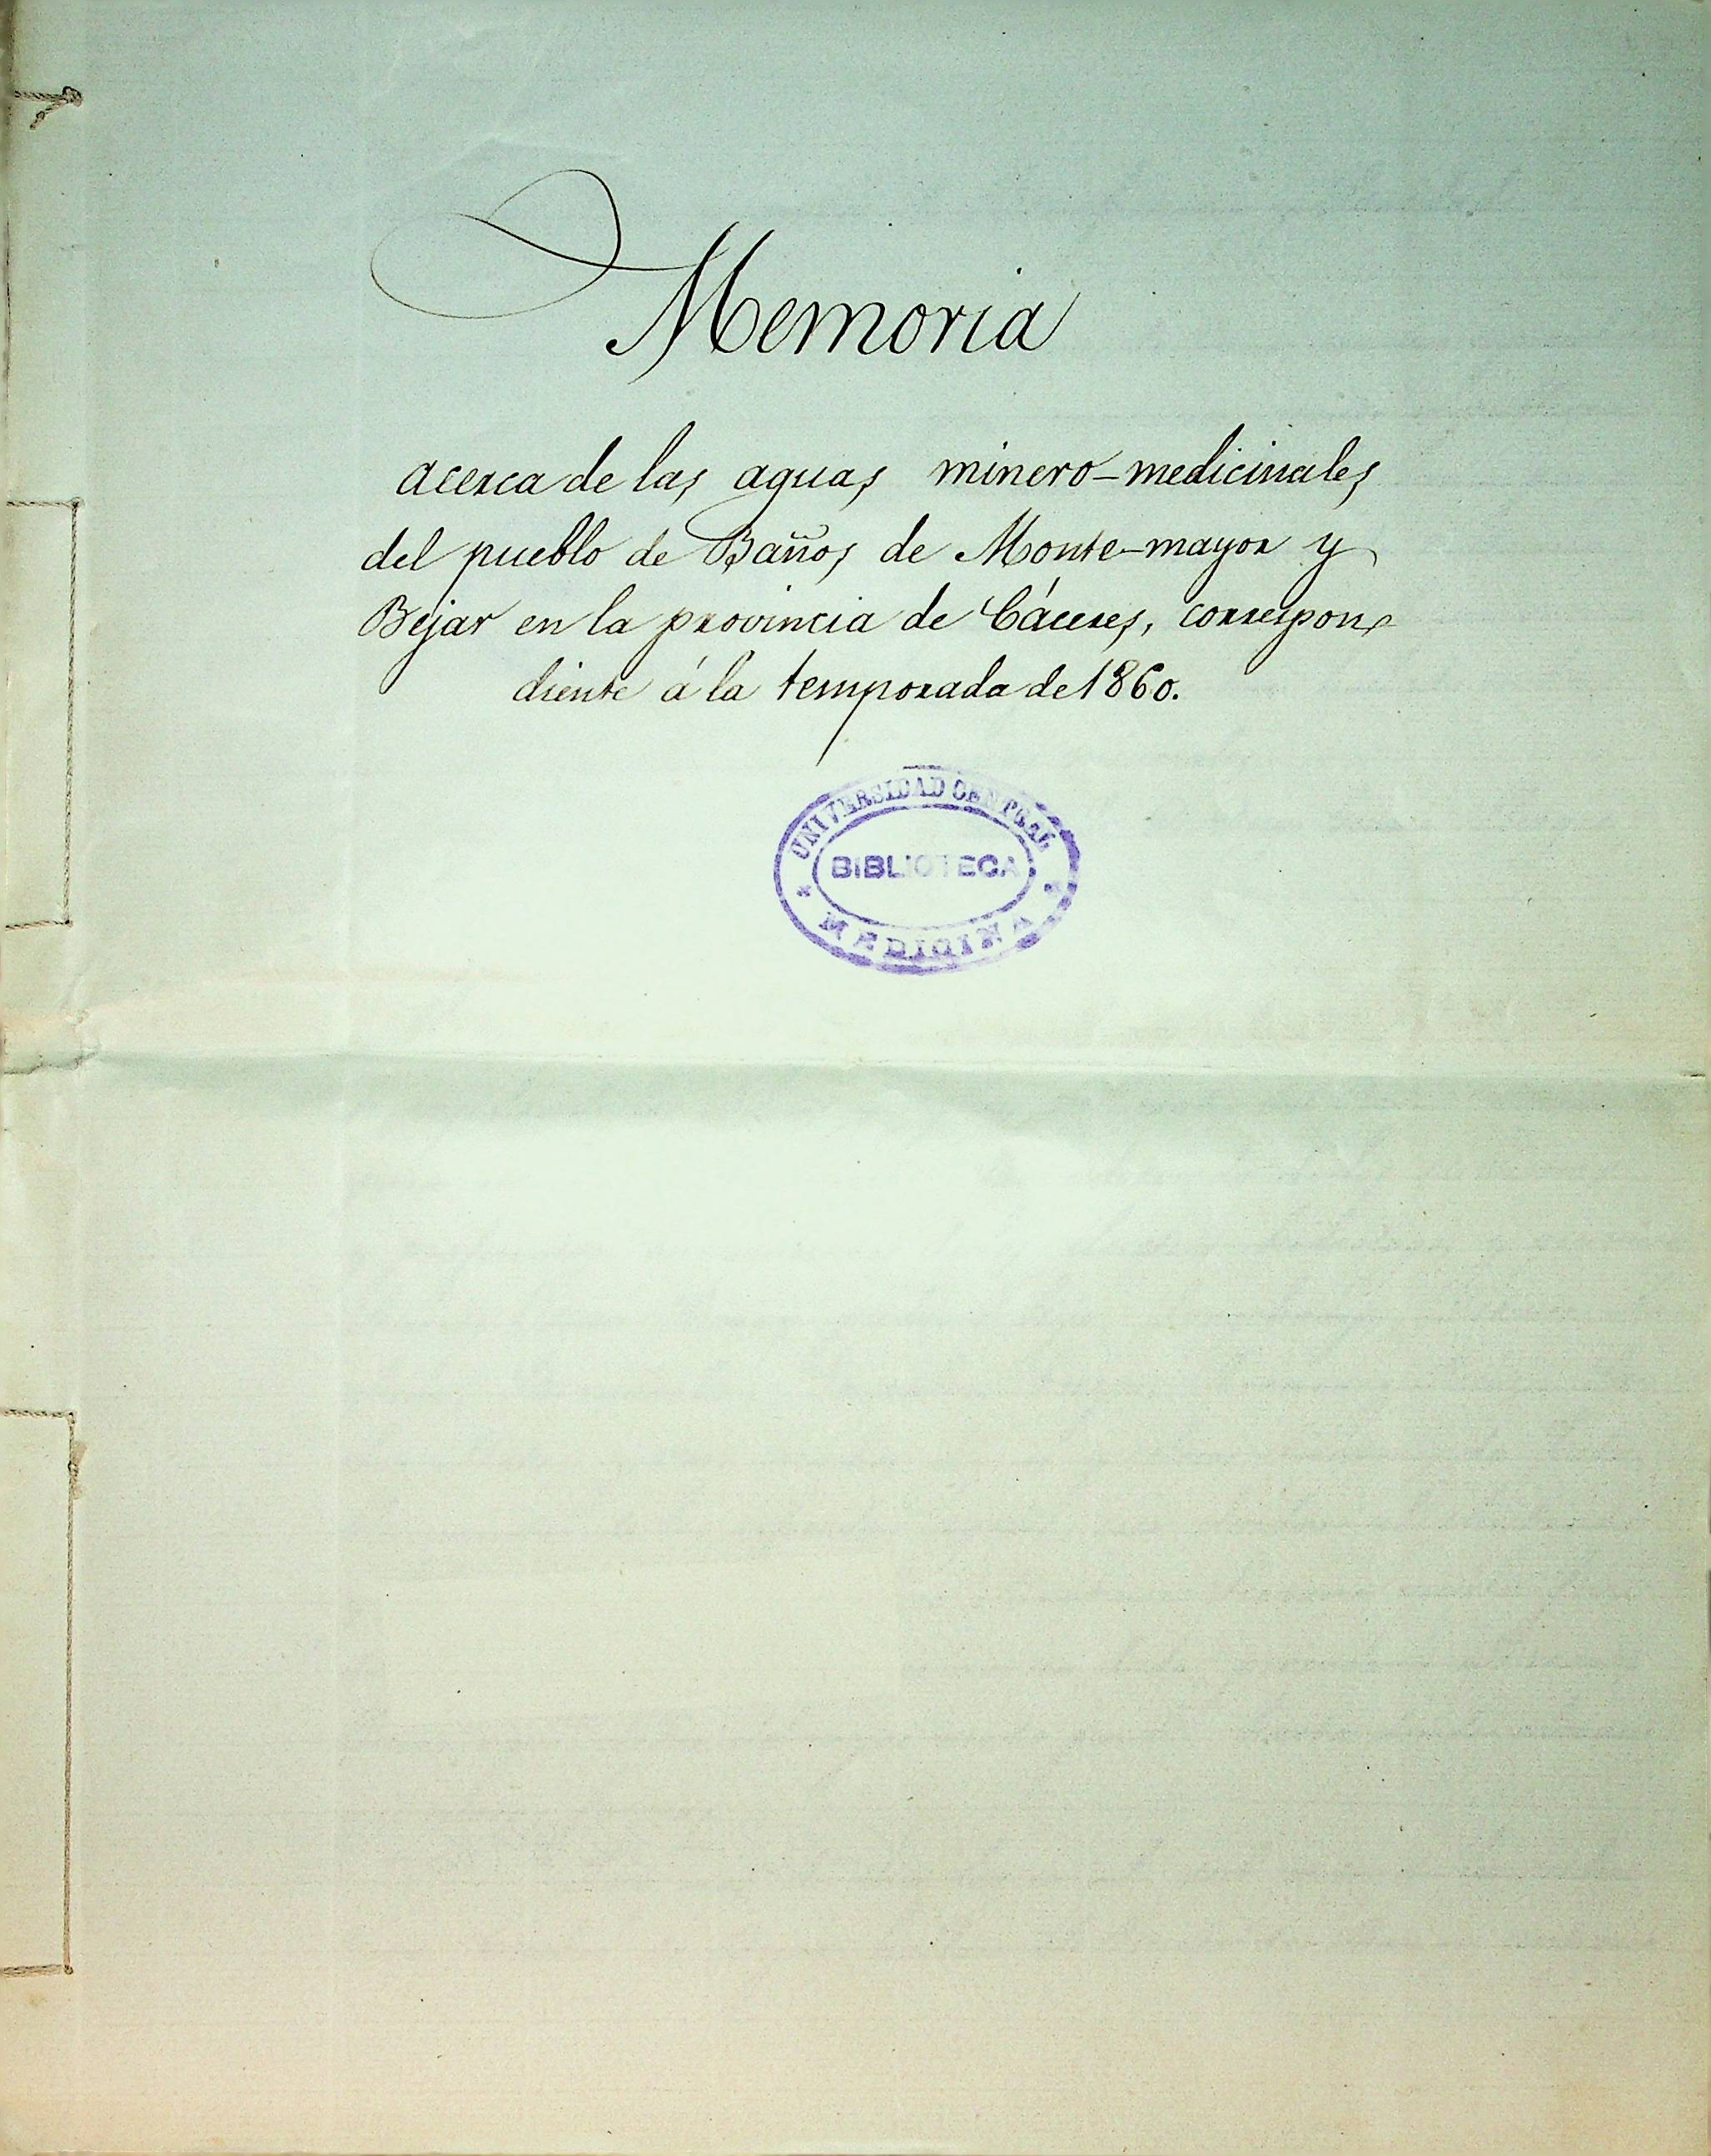 Memoria
acerca de las aguas minero-medicinales
del pueblo de Baños de Monte-mayor y
Bejar en la provincia de Cáceres, correspon-
diente á la temporada de 1860.
UNIVERSIDAD CENTRAL
BIBLIOTECA
MEDICINA